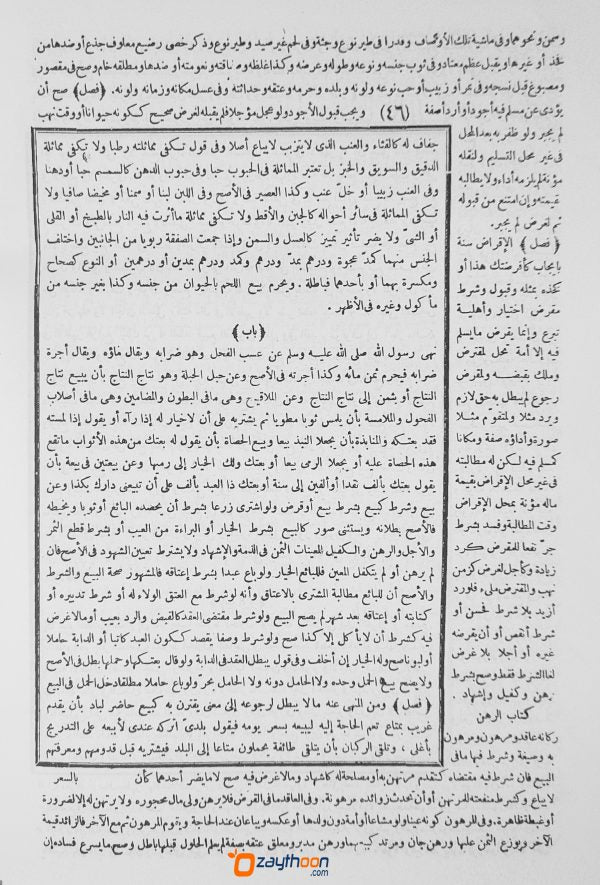 وسمن ونحوهما وفى ماشية تلك الأوصاف وقدرا فى طير نوع وجثة وفى لحم غير صيد وطير نوع وذكر خصى رضيع معلوف جذع أو ضدها من
فخذ أو غيرها ويقبل عظم معتاد وفى ثوب جنسه ونوعه وطوله وعرضه وكذا غلظه وصفاقته ونعومته أو ضدها ومطلقه خام وصح فى مقصور
ومصبوغ قبل نسجه وفى تمر أو زبيب أو حب نوعه ولونه وبلده وجرمه وعتقه وحداثته وفى عسل مكانه وزمانه ولونه. ﴿فصل﴾ صح أن
يؤدى عن مسلم فيه أجود أو أردأ صفة (٤٦) ويجب قبول الأجود ولو عجل مؤجلا فلم يقبله لغرض صحيح ككونه حيوانا أو وقت نهب
لم يجبر ولو ظفر به بعد المحل
فى غير محل التسليم ولنقله
مؤنة لم يلزمه أداء ولا يطالبه
بقيمته وإن امتنع من قبوله
ثم لغرض لم يجبر.
﴿فصل﴾ الإقراض سنة
بإيجاب كأقرضتك هذا أو
كخذه بمثله وقبول وشرط
مقرض اختيار وأهلية
تبرع وإنما يقرض ما يسلم
فيه إلا أمة تحل لمقترض
وملك بقبضه ولمقرض
رجوع لم يبطل به حق لازم
ويرد مثلا ولمتقوم مثلا
صورة وأداؤه صفة ومكانا
كمسلم فيه لكن له مطالبته
فى غير محل الإقراض بقيمة
ماله مؤنة بمحل الإقراض
وقت المطالبة وفسد بشرط
جر نفعا للمقرض كرد
زيادة وكأجل لغرض كزمن
نهب والمقترض ملىء فلو رد
أزيد بلا شرط فحسن أو
شرط أنقص أو أن يقرضه
غيره أو أجلا بلا غرض
لغا الشرط فقط وصح بشرط
رهن وكفيل وإشهاد .
كتاب الرهن
ركانه عاقد ومرهون ومرهون
به وصيغة وشرط فيها ما فى
جفاف له كالقثاء والعنب الذى لا يتزبب لا يباع أصلا وفى قول تكفى مماثلته رطبا ولا تكفى مماثلة
الدقيق والسويق والخبز بل تعتبر المماثلة فى الحبوب حبا وفى حبوب الدهن كالسمسم حبا أو دهنا
وفى العنب زبيبا أو خل عنب وكذا العصير فى الأصح وفى اللبن لبنا أو سمنا أو مخيضا صافيا ولا
تكفى المماثلة فى سائر أحواله كالجبن والأقط ولا تكفى مماثلة ما أثرت فيه النار بالطبخ أو القلى
أو الشىّ ولا يضر تأثير تمييز كالعسل والسمن وإذا جمعت الصفقة ربويا من الجانبين واختلف
الجنس منهما كمد عجوة ودرهم بمدّ ودرهم وكمد ودرهم بمدين أو درهمين أو النوع كصحاح
ومكسرة بهما أو بأحدهما فباطلة . ويحرم بيع اللحم بالحيوان من جنسه وكذا بغير جنسه من
مأكول وغيره فى الأظهر .
﴿باب﴾
نهى رسول الله صلى الله عليه وسلم عن عسب الفحل وهو ضرابه ويقال ماؤه ويقال أجرة
ضرابه فيحرم ثمن مائه وكذا أجرته فى الأصح وعن حبل الحبلة وهو نتاج النتاج بأن يبيع نتاج
النتاج أو بثمن إلى نتاج النتاج وعن الملاقيح وهى مافى البطون والمضامين وهى مافى أصلاب
الفحول والملامسة بأن يلمس ثوبا مطويا ثم يشتريه على أن لا خيار له إذا رآه أو يقول إذا لمسته
فقد بعتكه والمنابذة بأن يجعلا النبذ بيعا وبيع الحصاة بأن يقول له بعتك من هذه الأثواب ما تقع
هذه الحصاة عليه أو يجعلا الرمى بيعا أو بعتك ولك الخيار إلى رميها وعن بيعتين فى بيعة بأن
يقول بعتك بألف نقدا أو ألفين إلى سنة أو بعتك ذا العبد بألف على أن تبيعنى دارك بكذا وعن
بيع وشرط كبيع بشرط بيع أو قرض ولو اشترى زرعا بشرط أن يحصده البائع أو ثوبا ويخيطه
فالأصح بطلانه ويستثنى صور كالبيع بشرط الخيار أو البراءة من العيب أو بشرط قطع الثمر
والأجل والرهن والكفيل المعينات لثمن فى الذمة والإشهاد ولا يشترط تعيين الشهود فى الأصح فان
لم يرهن أو لم يتكفل المعين فللبائع الخيار ولو باع عبدا بشرط إعتاقه فالمشهور صحة البيع والشرط
والأصح أن للبائع مطالبة المشترى بالاعتاق وأنه لو شرط مع العتق الولاء له أو شرط تدبيره أو
كتابته أو إعتاقه بعد شهر لم يصح البيع ولو شرط مقتضى العقد كالقبض والرد بعيب أو ما لا غرض
فيه كشرط أن لا يأكل إلا كذا صح ولو شرط وصفا يقصد ككون العبد كاتبا أو الدابة حاملا
أو لبونا صح وله الخيار إن أخلف وفى قول يبطل العقد فى الدابة ولو قال بعتكها وحملها بطل فى الأصح
ولا يصح بيع الحمل وحده ولا الحامل دونه ولا الحامل بحرّ ولو باع حاملا مطلقا دخل الحمل فى البيع
﴿فصل﴾ ومن المنهى عنه ما لا يبطل لرجوعه إلى معنى يقترن به كبيع حاضر لباد بأن يقدم
غريب بمتاع تعم الحاجة إليه ليبيعه بسعر يومه فيقول بلدىّ اتركه عندى لأبيعه على التدريج
بأغلى ، وتلقى الركبان بأن يتلقى طائفة يحملون متاعا إلى البلد فيشتريه قبل قدومهم ومعرفتهم
بالسعر
البيع فان شرط فيه مقتضاه كتقدم مرتهن به أو مصلحة له كاشهاد وما لا غرض فيه صح لا ما يضر أحدهما كأن
لا يباع وكشرط منفعته للمرتهن أو أن تحدث زوائده مرهونة. وفى العاقد ما فى المقرض فلا يرهن ولى مال محجوره ولا يرتهن له إلا لضرورة
أو غبطة ظاهرة. وفى المرهون كونه عينا ولو مشاعا أو أمة دون ولدها أو عكسه ويباعان عند الحاجة ويقوم المرهون ثم مع الآخر فالزائد قيمة
الآخر ويوزع الثمن عليها ورهن جان ومرتد كبيعهما ورهن مدبر ومعلق عتقه بصفة لم يعلم الحلول قبلها باطل وصح ما يسرع فساده إن
ozaythoon
.com